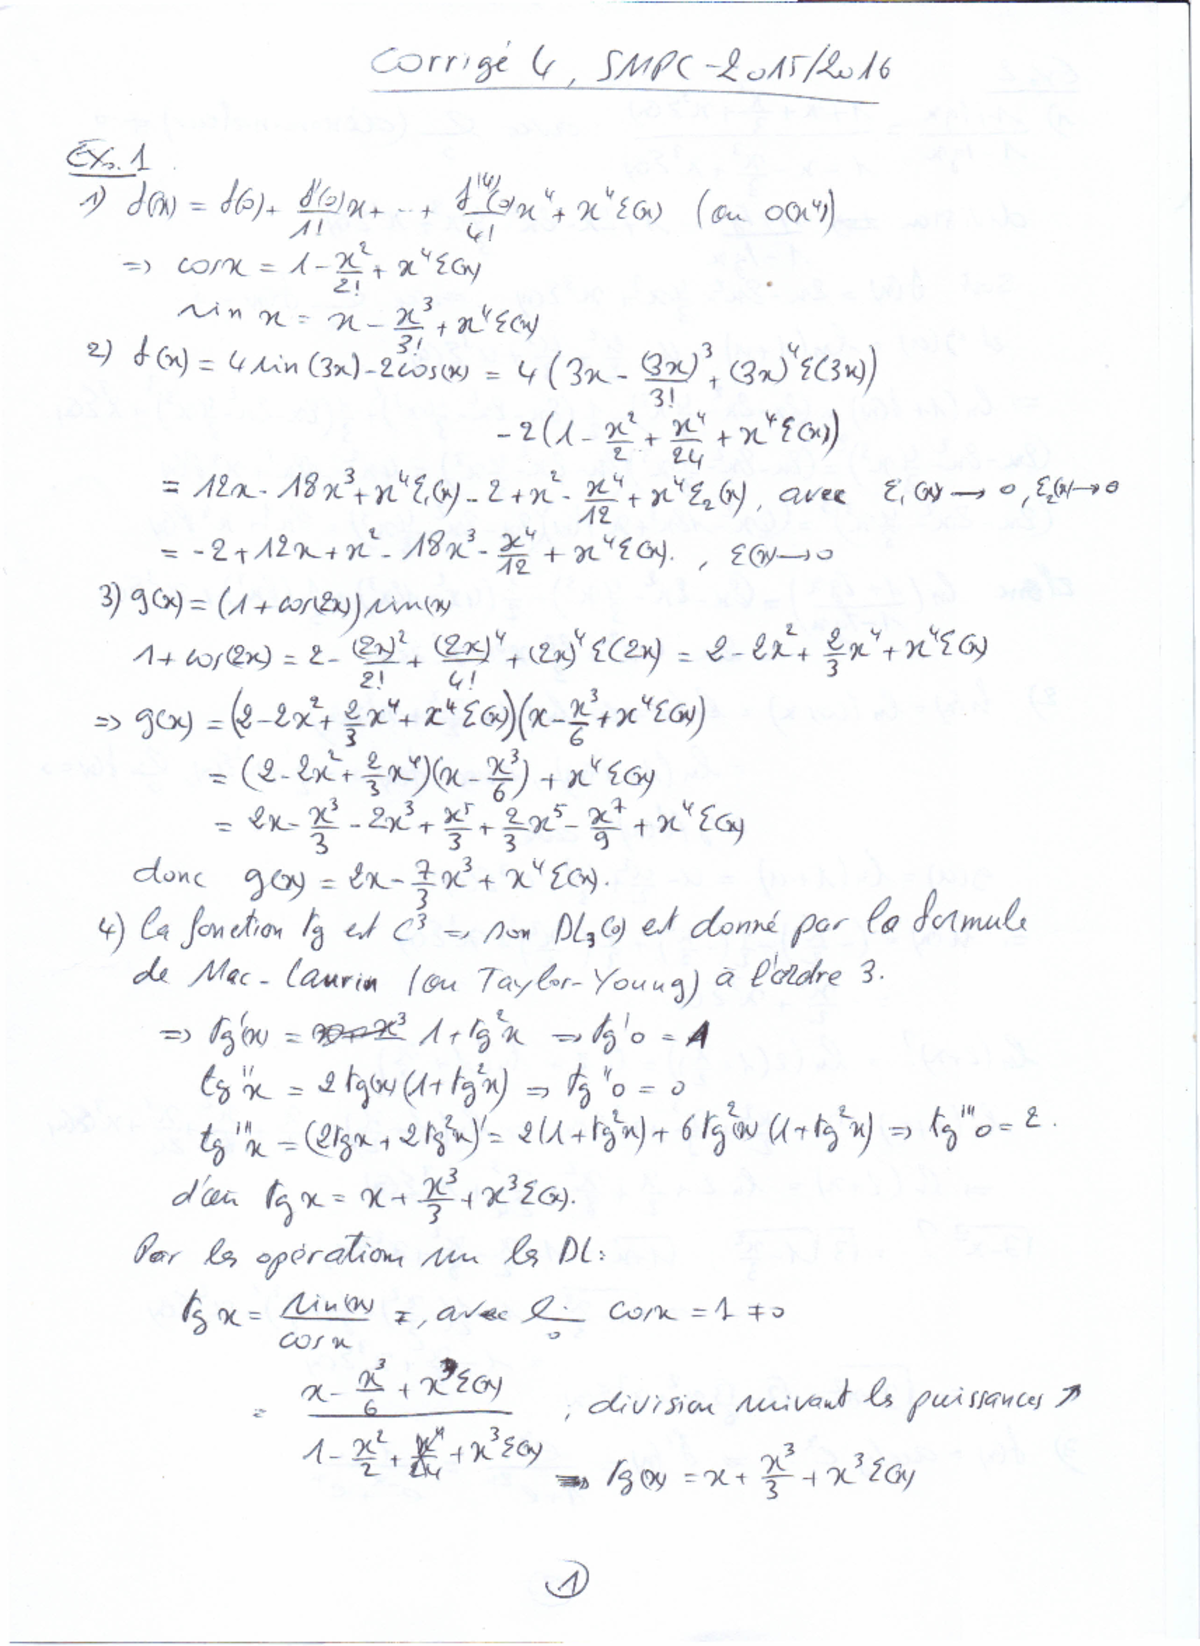 Corrigé 4, SMPC-2015/2016
Exo.1
1) f(x) = f(0) + f'(0)/1! x + ... + f⁽⁴⁾(0)/4! x⁴ + x⁴ε(x) (ou o(x⁴))
=> cosx = 1 - x²/2! + x⁴ε(x)
sin x = x - x³/3! + x⁴ε(x)
2) f(x) = 4 sin(3x) - 2cos(x) = 4(3x - (3x)³/3! + (3x)⁴ε(3x))
-2(1 - x²/2 + x⁴/24 + x⁴ε(x))
= 12x - 18x³ + x⁴ε₁(x) - 2 + x² - x⁴/12 + x⁴ε₂(x), avec ε₁(x) → 0, ε₂(x) → 0
= -2 + 12x + x² - 18x³ - x⁴/12 + x⁴ε(x). , ε(x) → 0
3) g(x) = (1 + cos(2x)) sin(x)
1 + cos(2x) = 2 - (2x)²/2! + (2x)⁴/4! + (2x)⁴ε(2x) = 2 - 2x² + 2/3 x⁴ + x⁴ε(x)
=> g(x) = (2 - 2x² + 2/3 x⁴ + x⁴ε(x))(x - x³/6 + x⁴ε(x))
= (2 - 2x² + 2/3 x⁴)(x - x³/6) + x⁴ε(x)
= 2x - x³/3 - 2x³ + x⁵/3 + 2/3 x⁵ - x⁷/9 + x⁴ε(x)
donc g(x) = 2x - 7/3 x³ + x⁴ε(x).
4) la fonction tg est C³ => son DL₃(0) est donné par la formule
de Mac-laurin (ou Taylor-Young) à l'ordre 3.
=> tg'(x) = 1 + tg²x => tg'0 = 1
tg''x = 2tg(x)(1 + tg²x) => tg''0 = 0
tg'''x = (2tgx + 2tg²x)' = 2(1 + tg²x) + 6tg²(x)(1 + tg²x) => tg'''0 = 2.
d'où tg x = x + x³/3 + x³ε(x).
Par les opération sur les DL:
tg x = sin(x)/cos x , avec l._0 cosx = 1 ≠ 0
= (x - x³/6 + x³ε(x))/(1 - x²/2 + x⁴/24 + x³ε(x)) ; division suivant les puissances ↗
=> tg(x) = x + x³/3 + x³ε(x)
1